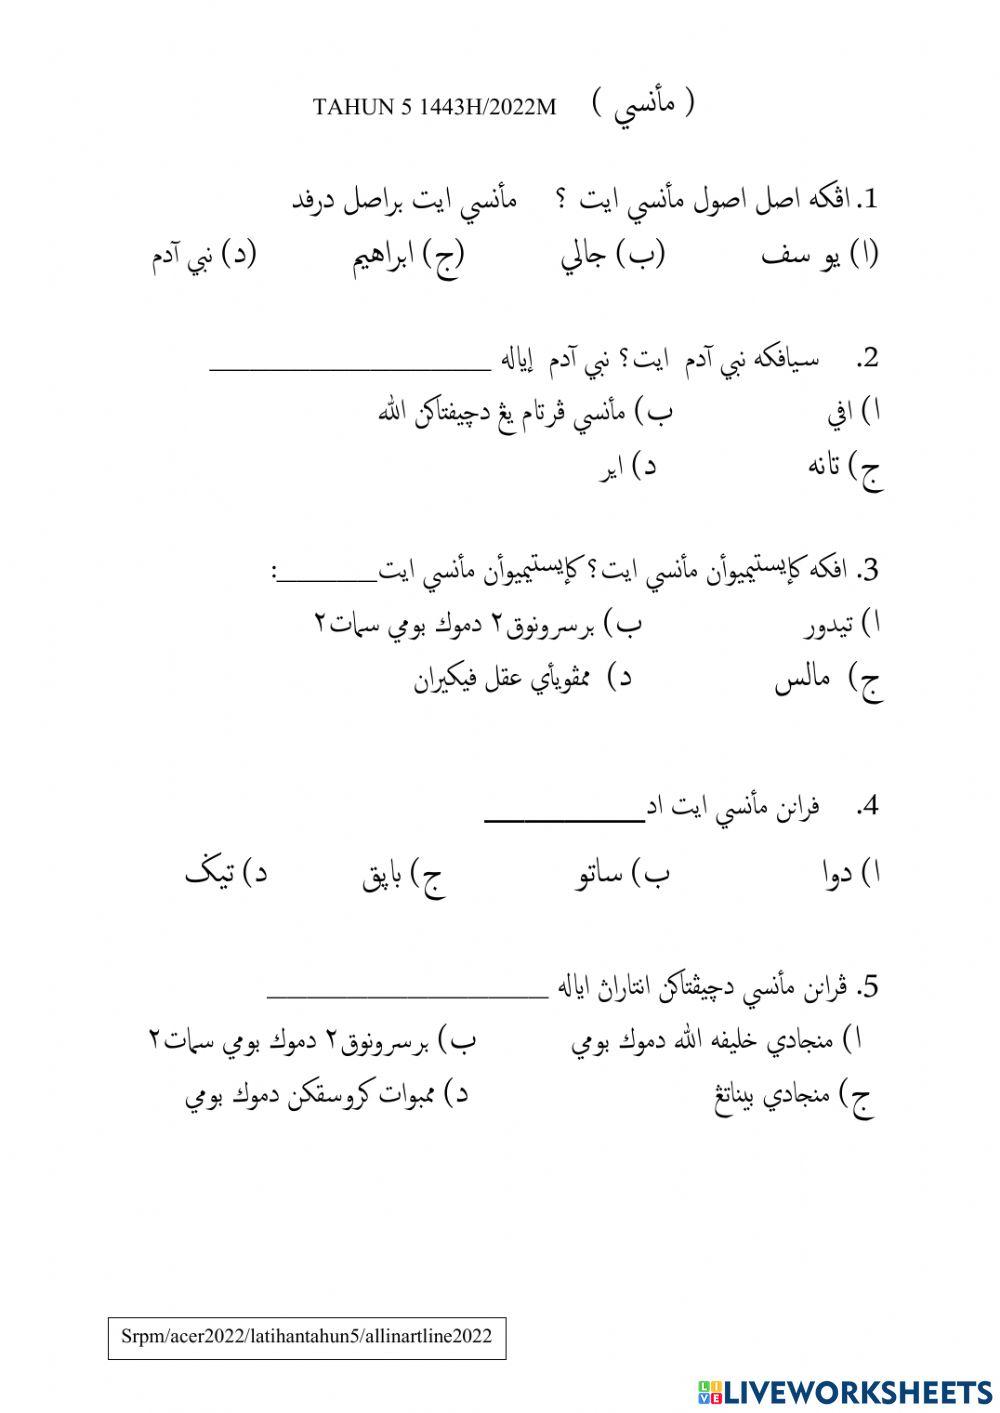 TAHUN 5 1443H/2022M ( مأنسي )
1. اڤكه اصل اصول مأنسي ايت ؟ مأنسي ايت براصل درفد
(ا) يو سف (ب) جالي (ج) ابراهيم (د) نبي آدم
2. سيافكه نبي آدم ايت؟ نبي آدم إياله ____________________
ا) افي ب) مأنسي ڤرتام يڠ دچيفتاكن الله
ج) تانه د) اير
3. افكه كإيستيميوأن مأنسي ايت؟ كإيستيميوأن مأنسي ايت_______:
ا) تيدور ب) برسرونوق٢ دموك بومي سمات٢
ج) مالس د) ممڤويأي عقل فيكيران
4. فرانن مأنسي ايت اد___________
ا) دوا ب) ساتو ج) باڽق د) تيݢ
5. ڤرانن مأنسي دچيڤتاكن انتاراڽ اياله ____________________
ا) منجادي خليفه الله دموك بومي ب) برسرونوق٢ دموك بومي سمات٢
ج) منجادي بيناتڠ د) ممبوات كروسقكن دموك بومي
Srpm/acer2022/latihantahun5/allinartline2022
LIVEWORKSHEETS